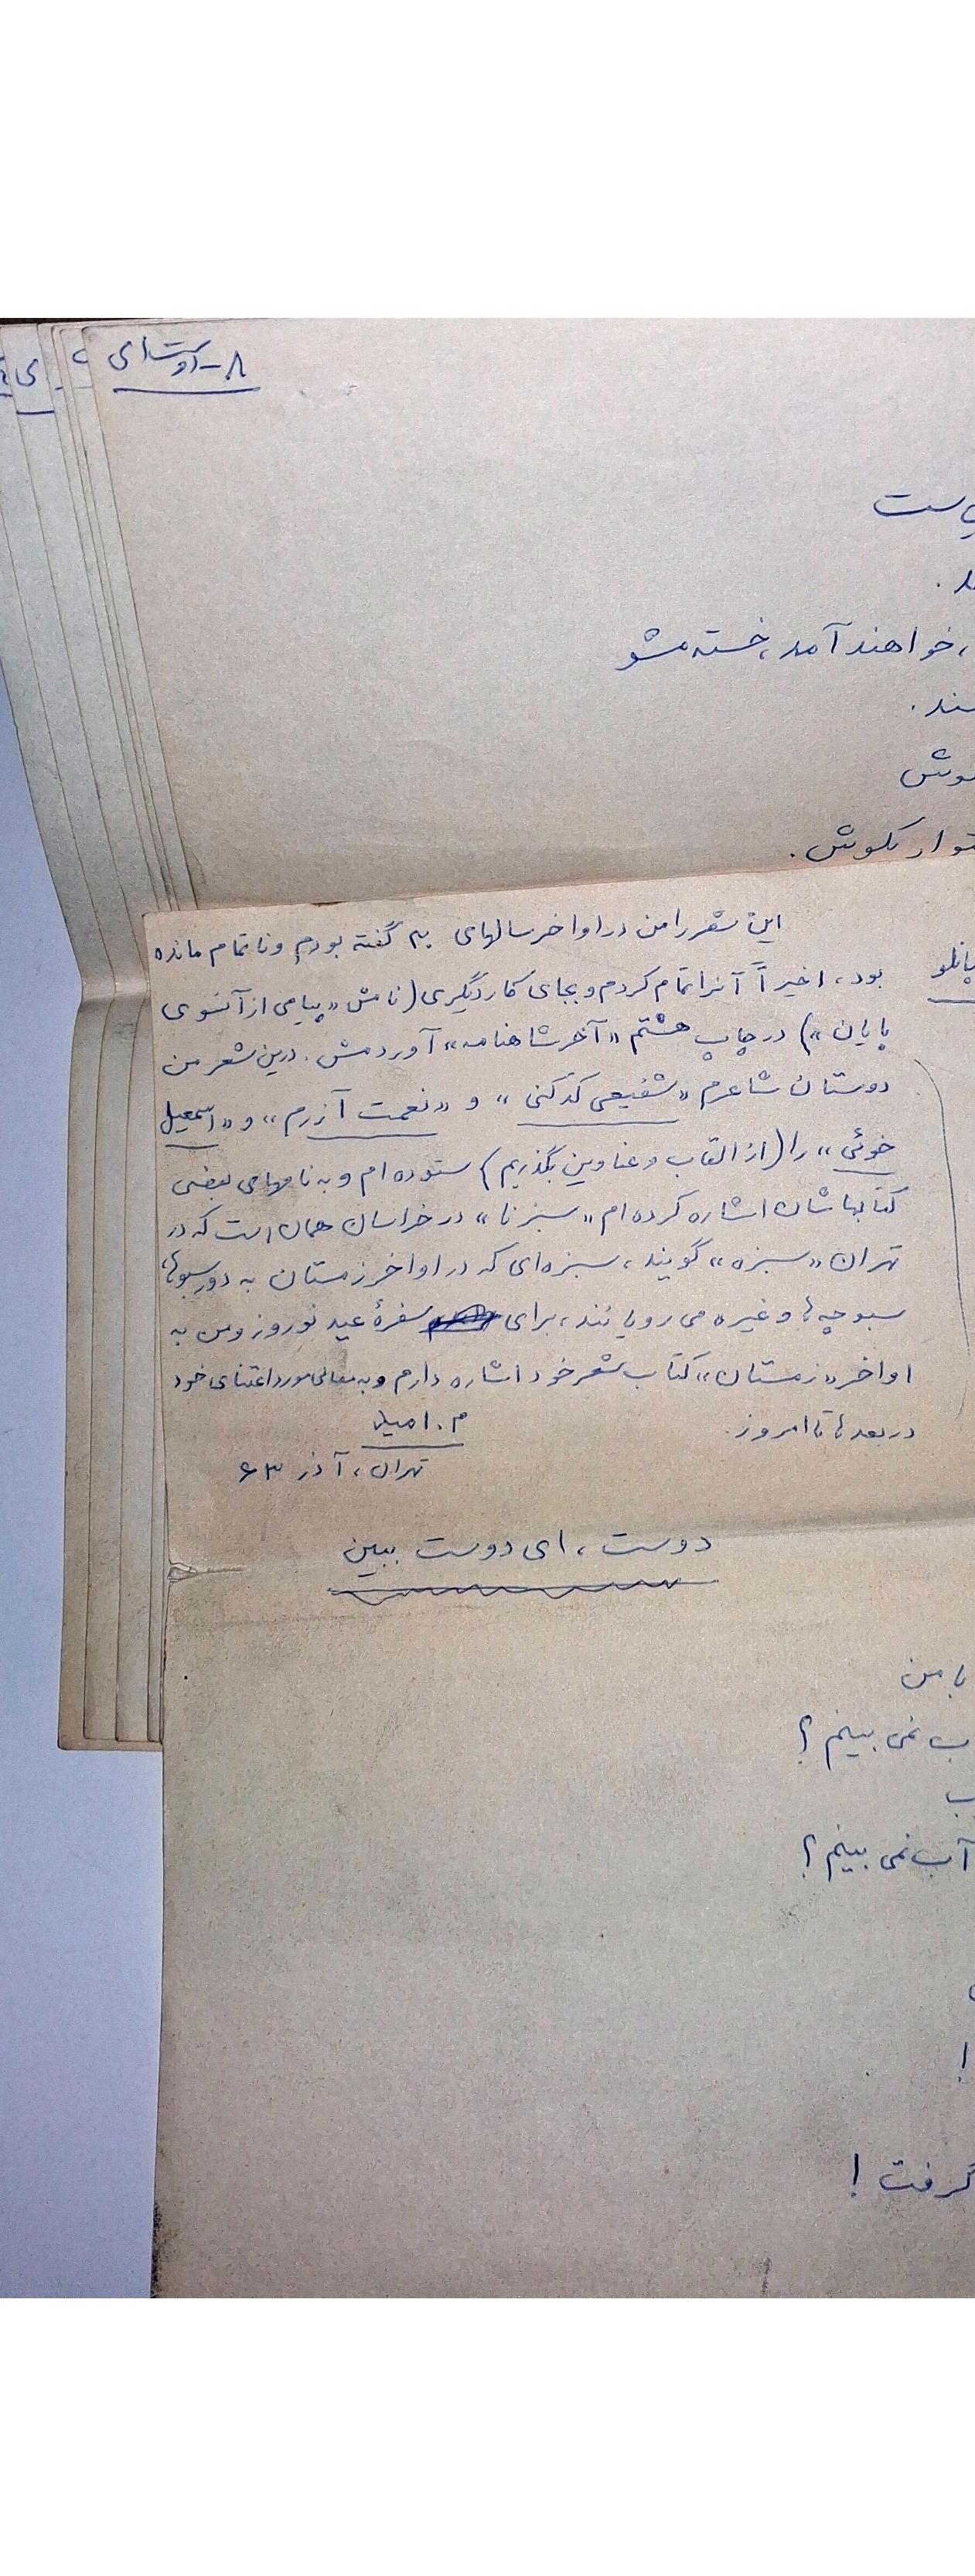 ۸- اوستای
ست
، خواهند آمد ، خسته مشو
ند .
وش
بکوش .
این شعر را من در اواخر سالهای ۴۰ گفته بودم و ناتمام مانده
بود ، اخیراً آنرا تمام کردم و بجای کار دیگری (نامش «پیامی از آنسوی
پایان») در چاپ هشتم «آخر شاهنامه» آوردمش . درین شعر من
دوستان شاعرم «شفیعی کدکنی» و «نعمت آزرم» و «اسمعیل
خوئی» را (از القاب و عناوین بگذریم) ستوده ام و به نامهای بعضی
کتابهاشان اشاره کرده ام «سبزنا» در خراسان همان است که در
تهران «سبزه» گویند ، سبزه ای که در اواخر زمستان به دور سبوها،
سبوچه ها و غیره می رویانند ، برای سفرهٔ عید نوروز و من به
اواخر «زمستان» کتاب شعر خود اشاره دارم و به معانی مورد اعتنای خود
در بعدها تا امروز .
م . امید
تهران ، آذر ۶۳
دوست ، ای دوست ببین
با من
نمی بینم ؟
آب نمی بینم ؟
!
گرفت !